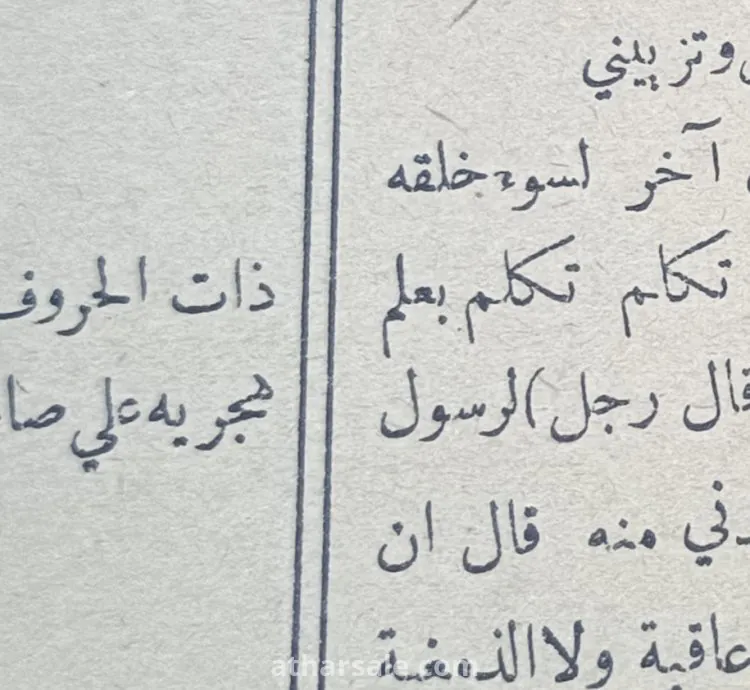 وتزييني
آخر لسوء خلقه
تكلم تكلم بعلم
قال رجل) لرسول
مني منه قال ان
عاقبة ولا
ذات الحروف
هجريه علي
atharsale.com